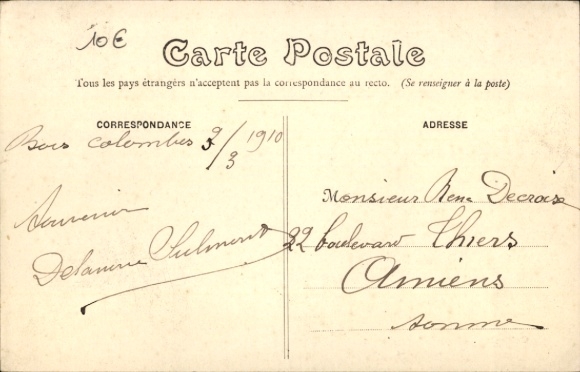 10€
Carte Postale
Tous les pays étrangers n'acceptent pas la correspondance au recto. (Se renseigner à la poste)
CORRESPONDANCE
ADRESSE
Bois Colombes 9/3 1910
Souvenir
Monsieur Rene Decroix
22 boulevard Thiers
Amiens
Somme